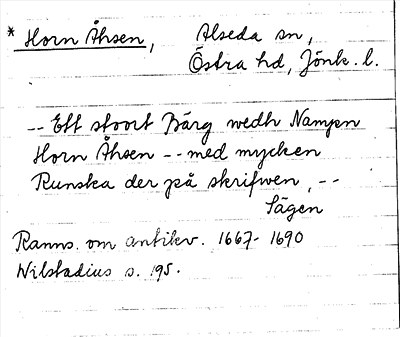 * Horn Åhsen, Alseda sn,
Östra hd, Jönk. l.
-- Ett stoort Bärg wedh Nampn
Horn Åhsen -- med mycken
Runska der på skrifwen, --
Sägen
Ranns. om antikv. 1667-1690
Wilstadius s. 195.